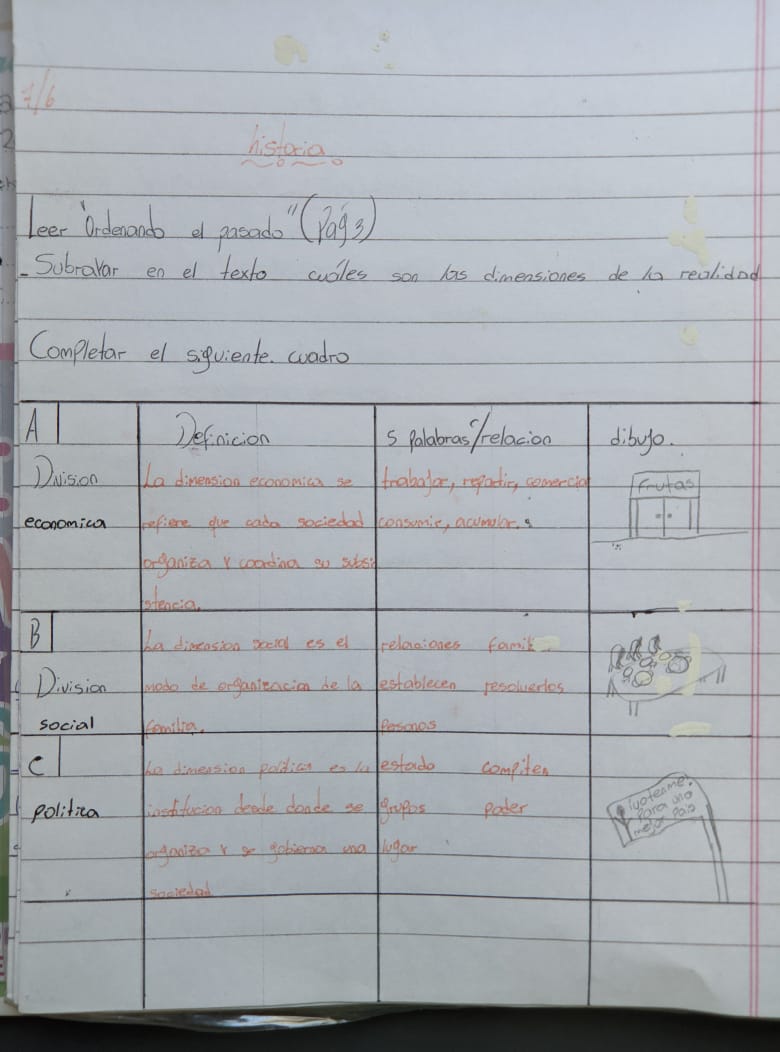 7/6
historia
Leer "Ordenando el pasado" (Pág 3)
- Subrayar en el texto cuáles son las dimensiones de la realidad
Completar el siguiente cuadro
A
Definicion
5 Palabras/relacion
dibujo.
Division
economica
La dimension economica se
refiere que cada sociedad
organiza y coordina su subsi
stencia.
trabajar, repartir, comercia
consumir, acumular.
Frutas
B
Division
social
La dimension social es el
modo de organizacion de la
familia.
relaciones famili
establecen resolverlos
Personas
C
politica
La dimension politica es la
institucion desde donde se
organiza y se gobierna una
sociedad
estado compiten
grupos poder
lugar
¡votenme!
Para una
mejor Pais